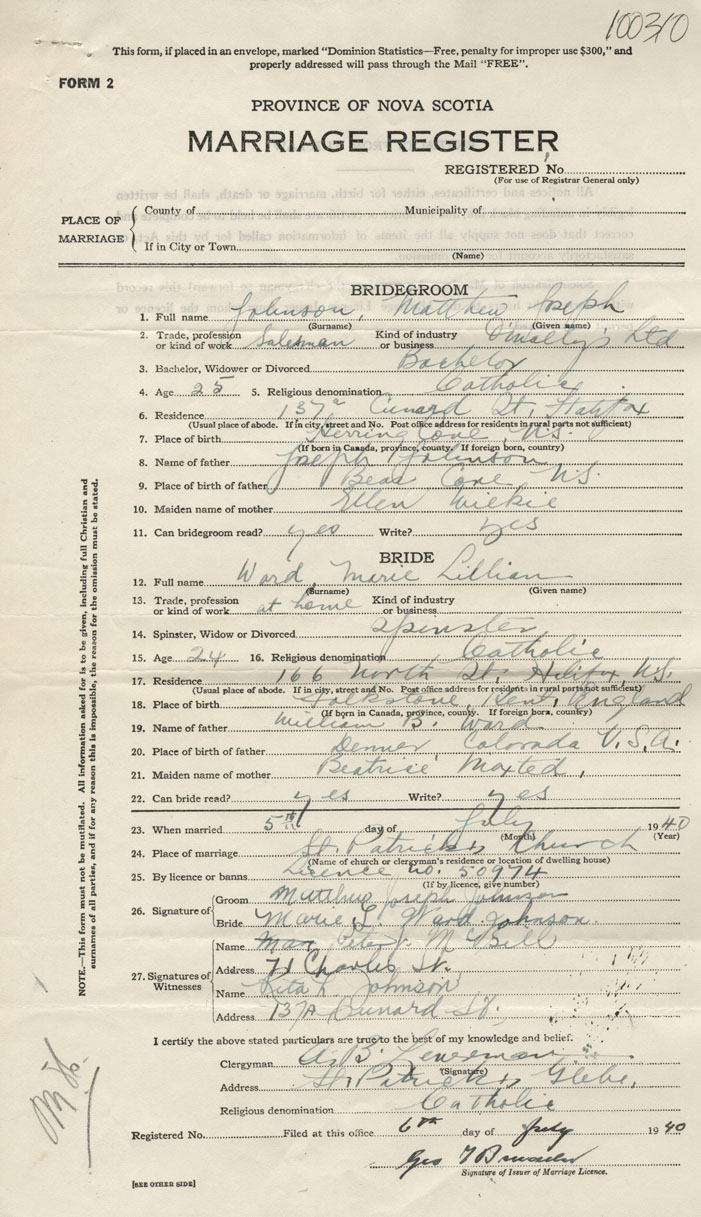 100310
This form, if placed in an envelope, marked "Dominion Statistics—Free, penalty for improper use $300," and
properly addressed will pass through the Mail "FREE".
FORM 2
PROVINCE OF NOVA SCOTIA
MARRIAGE REGISTER
REGISTERED No.
(For use of Registrar General only)
PLACE OF MARRIAGE
County of Municipality of
If in City or Town
(Name)
BRIDEGROOM
1. Full name Johnson, Matthew Joseph
(Surname) (Given name)
2. Trade, profession or kind of work Salesman Kind of industry or business O'Malley's Ltd
3. Bachelor, Widower or Divorced Bachelor
4. Age 25 5. Religious denomination Catholic
6. Residence 137a Cunard St, Halifax
(Usual place of abode. If in city, street and No. Post office address for residents in rural parts not sufficient)
7. Place of birth Herring Cove, N.S.
(If born in Canada, province, county. If foreign born, country)
8. Name of father Joseph Johnson
9. Place of birth of father Bear Cove N.S.
10. Maiden name of mother Ellen Wickie
11. Can bridegroom read? yes Write? yes
BRIDE
12. Full name Ward, Marie Lillian
(Surname) (Given name)
13. Trade, profession or kind of work at home Kind of industry or business
14. Spinster, Widow or Divorced Spinster
15. Age 24 16. Religious denomination Catholic
17. Residence 166 North St, Halifax, N.S.
(Usual place of abode. If in city, street and No. Post office address for residents in rural parts not sufficient)
18. Place of birth Folkstone, Kent, England
(If born in Canada, province, county. If foreign born, country)
19. Name of father William B. Ward
20. Place of birth of father Denver Colorada U.S.A.
21. Maiden name of mother Beatrice Moxted,
22. Can bride read? yes Write? yes
23. When married 5th day of July 1940
(Month) (Year)
24. Place of marriage St. Patrick's Church
(Name of church or clergyman's residence or location of dwelling house)
25. By licence or banns Licence no. 50974
(If by licence, give number)
26. Signature of
Groom Matthew Joseph Johnson
Bride Marie L. Ward Johnson
27. Signatures of Witnesses
Name Peter
Address 71 Charles St.
Name Rita L Johnson
Address 137A Cunard St,
I certify the above stated particulars are true to the best of my knowledge and belief.
Clergyman
(Signature)
Address St. Patrick's Glebe,
Religious denomination Catholic
Registered No. Filed at this office 6th day of July 1940
Geo
Signature of Issuer of Marriage Licence.
[SEE OTHER SIDE]
NOTE.—This form must not be mutilated. All information asked for is to be given, including full Christian and
surnames of all parties, and if for any reason this is impossible, the reason for the omission must be stated.